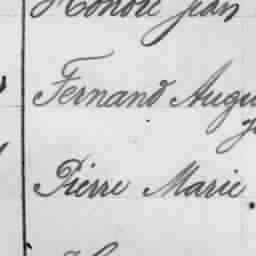 Honoré Jean
Fernand Augu
Pierre Marie